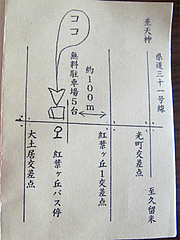 至天神
県道三十一号線
ココ
無料駐車場5台
約100m
大土居交差点
紅葉ヶ丘バス停
紅葉ヶ丘1交差点
光町交差点
至久留米